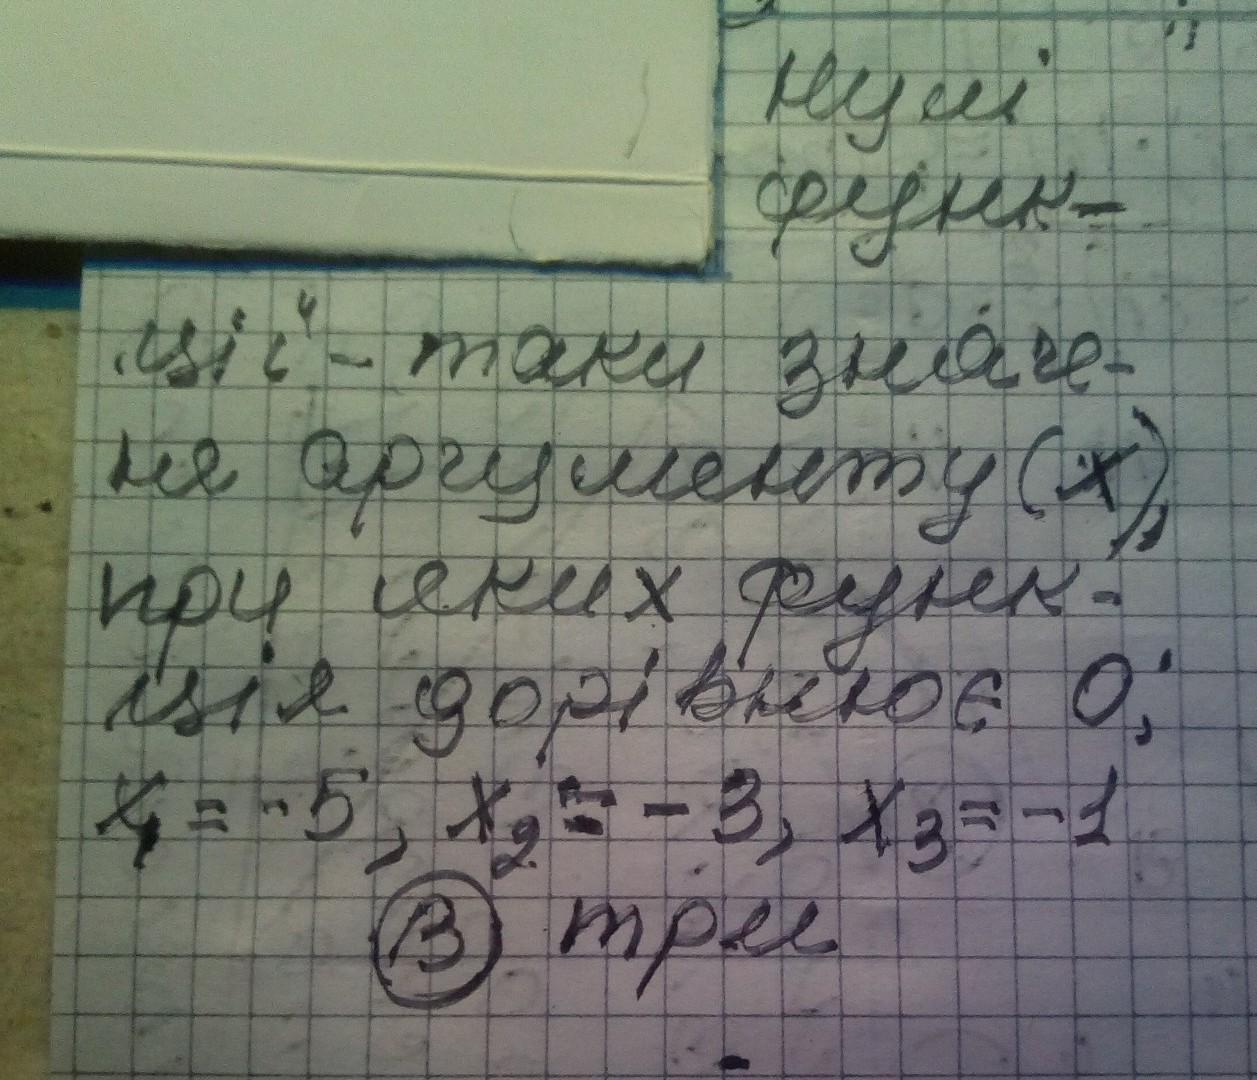 нулі
функ-
ції - таки значе-
ня аргументу (х),
при яких функ-
ція дорівнює 0;
x₁ = -5, x₂ = -3, x₃ = -1
В три